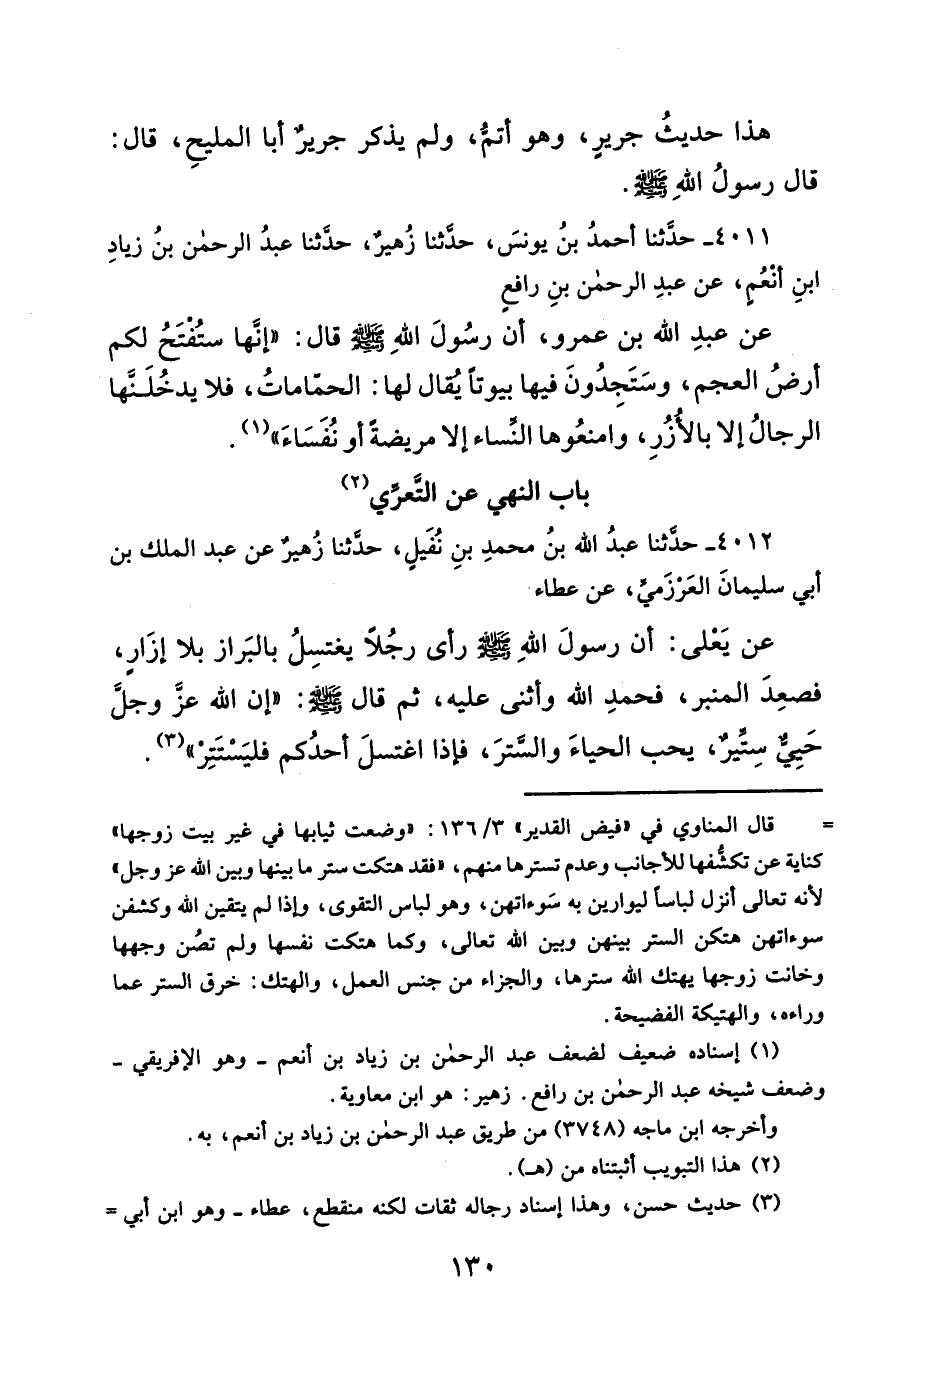 هذا حديثُ جريرٍ، وهو أتمُّ، ولم يذكر جريرٌ أبا المليحِ، قال:
قال رسولُ اللهِ ﷺ.
٤٠١١ـ حدَّثنا أحمدُ بنُ يونسَ، حدَّثنا زُهيرٌ، حدَّثنا عبدُ الرحمٰن بنُ زيادِ
ابنِ أنْعُمٍ، عن عبدِ الرحمٰن بنِ رافعٍ
عن عبدِ الله بن عمرو، أن رسُولَ اللهِ ﷺ قال: «إنَّها ستُفْتَحُ لكم
أرضُ العجم، وسَتَجِدُونَ فيها بيوتاً يُقال لها: الحمّاماتُ، فلا يدخُلَـنَّها
الرجالُ إلا بالأُزُرِ، وامنعُوها النِّساء إلا مريضةً أو نُفَسَاءَ»(١).
باب النهي عن التَّعرِّي(٢)
٤٠١٢ـ حدَّثنا عبدُ الله بنُ محمدِ بنِ نُفَيلٍ، حدَّثنا زُهيرٌ عن عبد الملك بن
أبي سليمانَ العَرْزَميِّ، عن عطاء
عن يَعْلى: أن رسولَ اللهِ ﷺ رأى رجُلاً يغتسِلُ بالبَراز بلا إزَارٍ،
فصعِدَ المنبر، فحمدِ الله وأثنى عليه، ثم قال ﷺ: «إن الله عزَّ وجلَّ
حَيِيٌّ سِتِّيرٌ، يحب الحياءَ والسَّترَ، فإذا اغتسلَ أحدُكم فليَسْتَتِرْ»(٣).
= قال المناوي في «فيض القدير» ٣/ ١٣٦: «وضعت ثيابها في غير بيت زوجها»
كناية عن تكشُّفها للأجانب وعدم تسترها منهم، «فقد هتكت ستر ما بينها وبين الله عز وجل»
لأنه تعالى أنزل لباساً ليوارين به سَوءاتهن، وهو لباس التقوى، وإذا لم يتقين الله وكشفن
سوءاتهن هتكن الستر بينهن وبين الله تعالى، وكما هتكت نفسها ولم تصُن وجهها
وخانت زوجها يهتك الله سترها، والجزاء من جنس العمل، والهتك: خرق الستر عما
وراءه، والهتيكة الفضيحة.
(١) إسناده ضعيف لضعف عبد الرحمٰن بن زياد بن أنعم ـ وهو الإفريقي ـ
وضعف شيخه عبد الرحمٰن بن رافع. زهير: هو ابن معاوية.
وأخرجه ابن ماجه (٣٧٤٨) من طريق عبد الرحمٰن بن زياد بن أنعم، به.
(٢) هذا التبويب أثبتناه من (هـ).
(٣) حديث حسن، وهذا إسناد رجاله ثقات لكنه منقطع، عطاء ـ وهو ابن أبي =
١٣٠